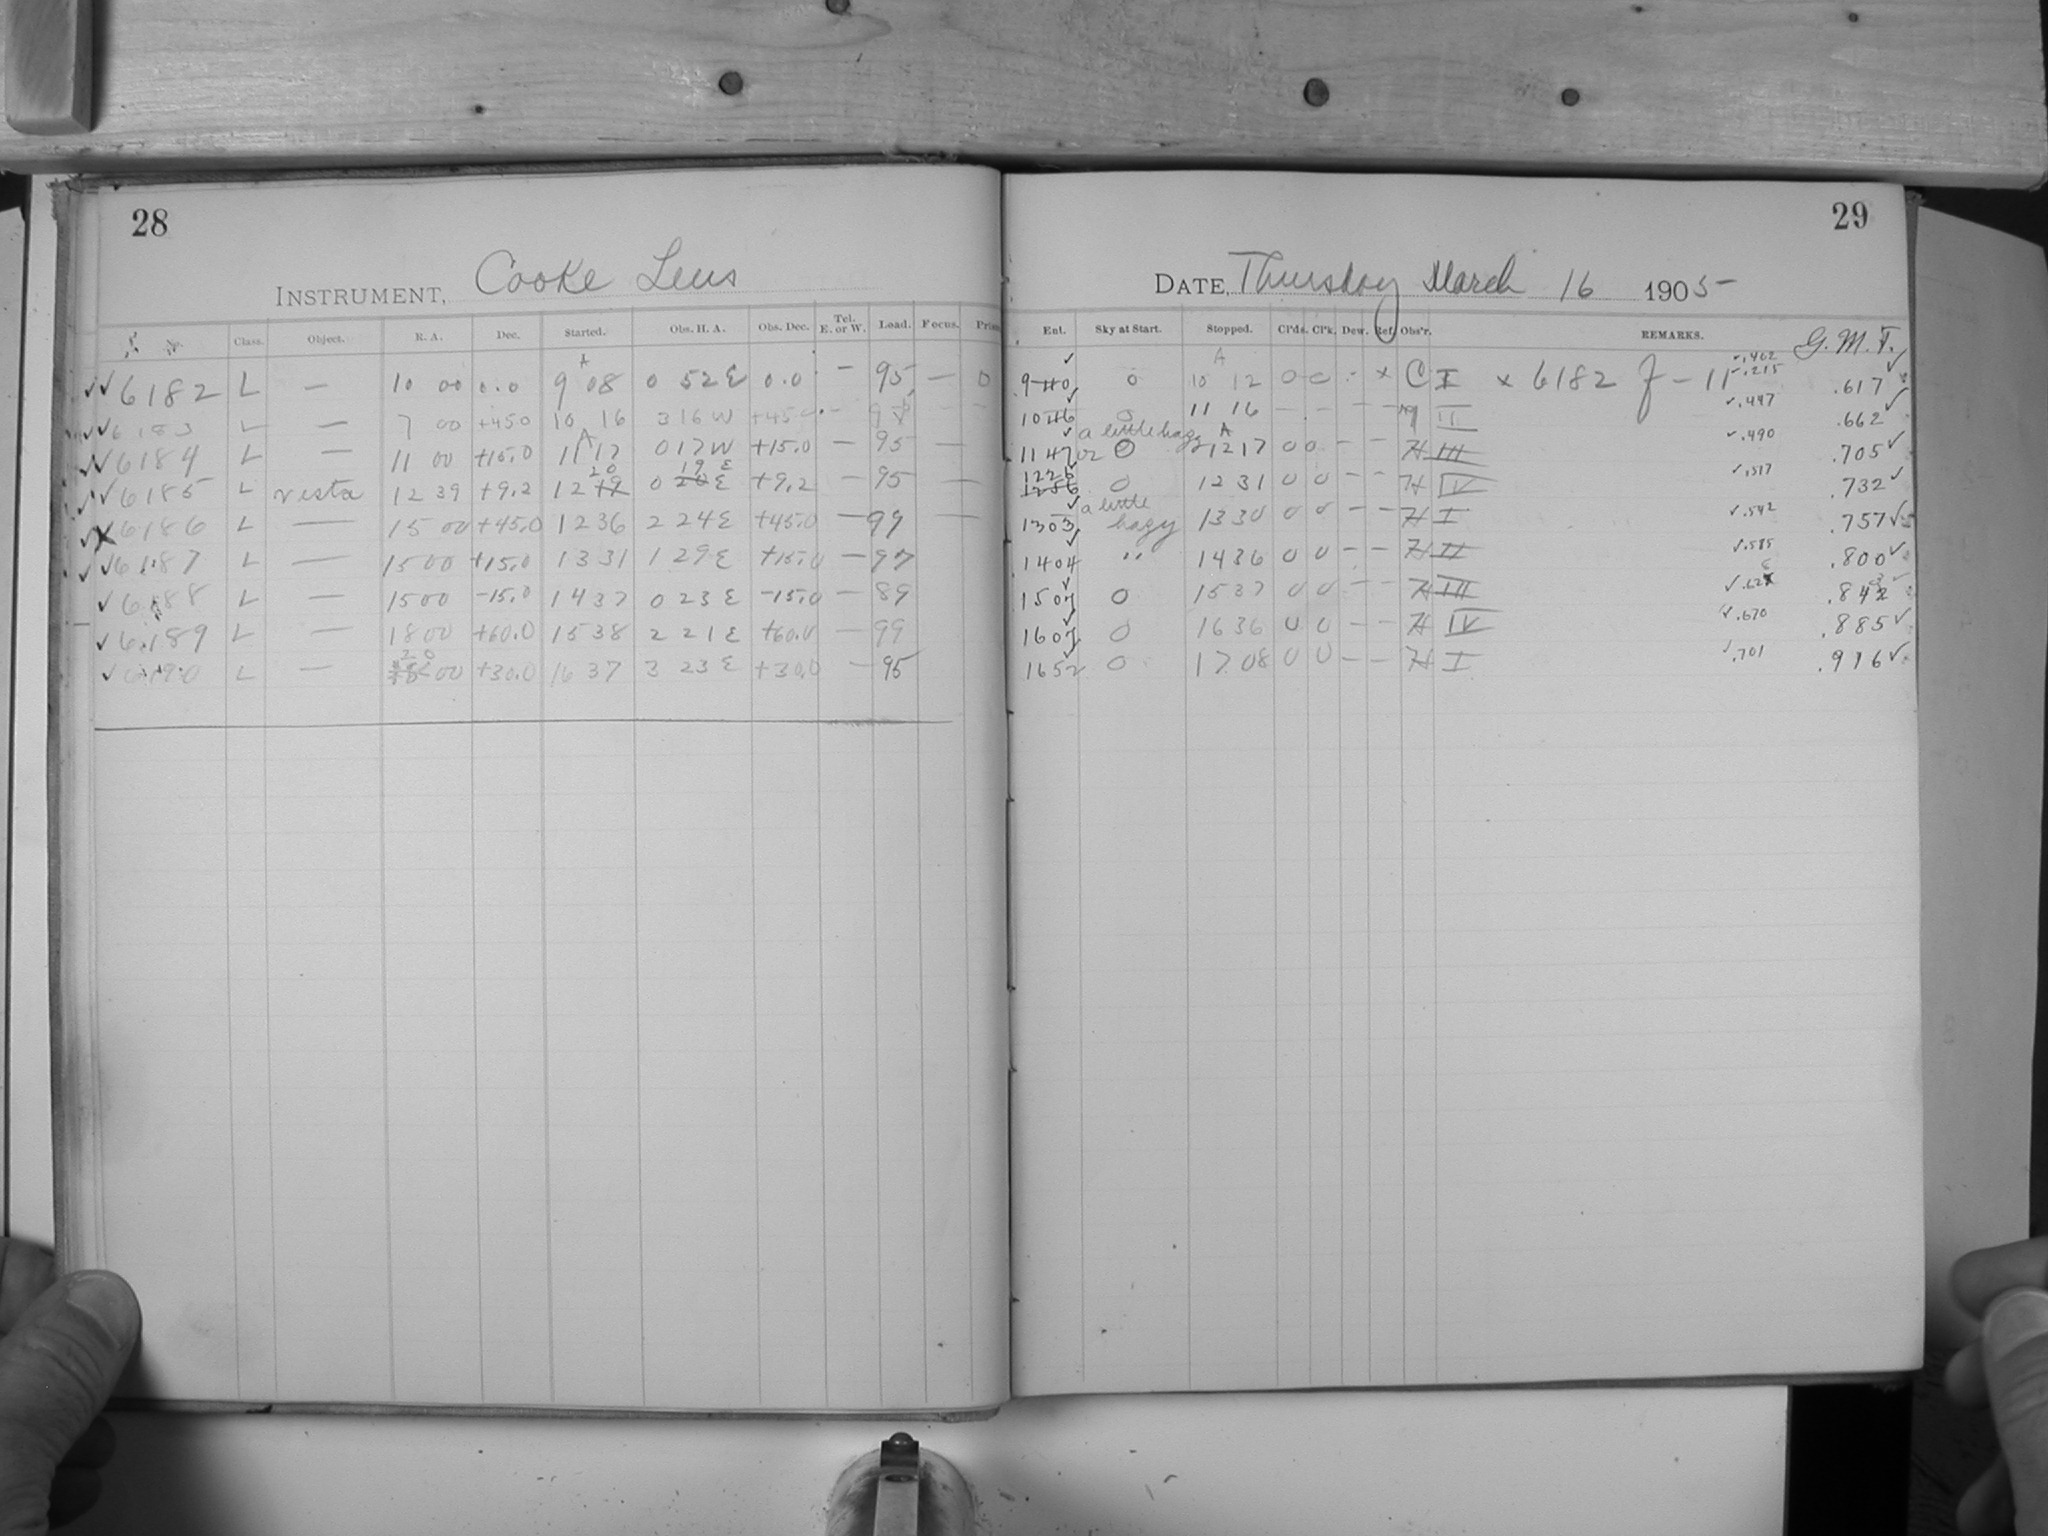 28
29
INSTRUMENT, Cooke Lens
DATE, Thursday March 16 1905
No. Class. Object. R. A. Dec. Started. Obs. H. A. Obs. Dec. Tel. E. or W. Load. Focus. Ent. Sky at Start. Stopped. Cl'ds. Cl'k. Dew. Ref. Obs'r. REMARKS. G. M. T.
✓✓ 6182 L — 10 00 0.0 9 08 0 52 E 0.0 — 95 — 9 40 0 10 12 0 0 - - × C I × 6182 f - 11 .402 .215 .617
✓✓ 6183 L — 7 00 +45.0 10 16 3 16 W 10 46 11 16 — — — — II ✓.447 .662 ✓
✓✓ 6184 L — 11 00 +15.0 11 17 0 17 W +15.0 — 95 — 11 47 a little hazy or 0 12 17 0 0 — — H III ✓.490 .705 ✓
✓✓ 6185 L vesta 12 39 +9.2 12 20 0 19 E +9.2 — 95 — 0 12 31 0 0 — — H IV ✓.517 .732 ✓
6186 L — 15 00 +45.0 12 36 2 24 E +45.0 — 99 — 13 03 a little hazy 13 30 0 0 — — H I ✓.542 .757 ✓
✓✓ 6187 L — 15 00 +15.0 13 31 1 29 E +15.0 — 97 14 04 " 14 36 0 0 — — H II ✓.585 .800 ✓
✓ 6188 L — 15 00 -15.0 14 37 0 23 E -15.0 — 89 15 07 0 15 37 0 0 — — H III
✓ 6189 L — 18 00 +60.0 15 38 2 21 E +60.0 — 99 16 07 0 16 36 0 0 — — H IV ✓.670 .885 ✓
✓ 6190 L — 20 00 +30.0 16 37 3 23 E +30.0 — 95 16 52 0 17 08 0 0 — — H I ✓.701 .916 ✓